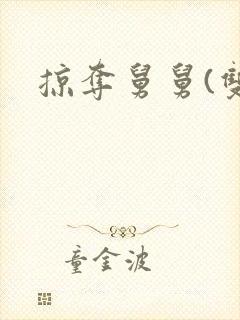 掠夺舅舅(雙
童金波